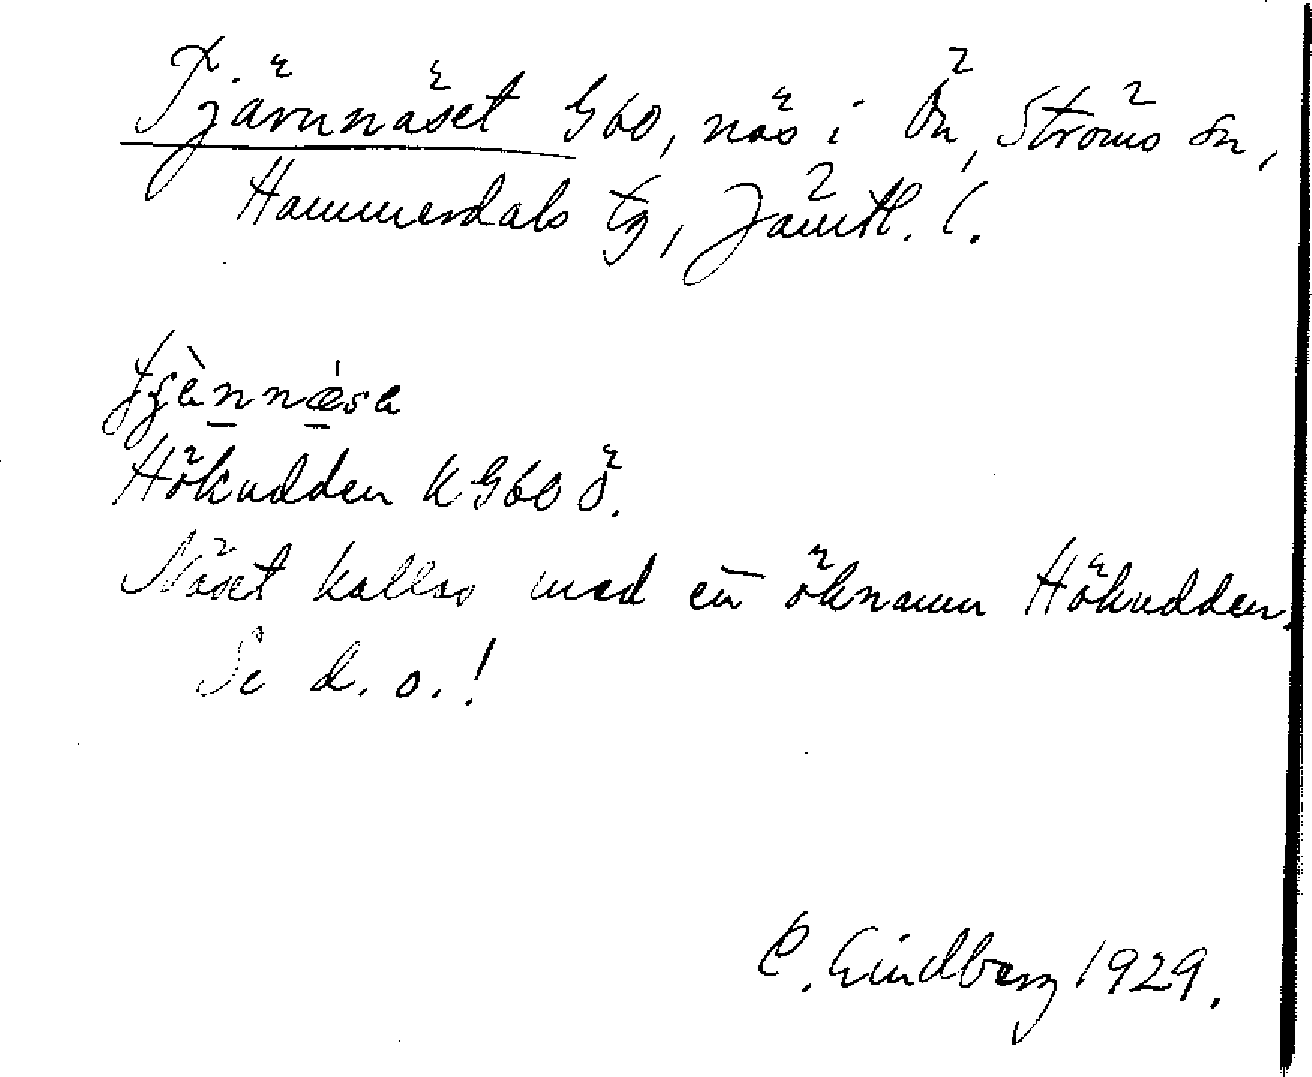 Tjärnnäset G60, näs i Ön, Ströms sn,
Hammerdals tg, Jämtl. l.
Hökudden K G60 ö.
Näset kallas med en öknamn Hökudden.
Se d. o.!
C. Lindberg 1929.